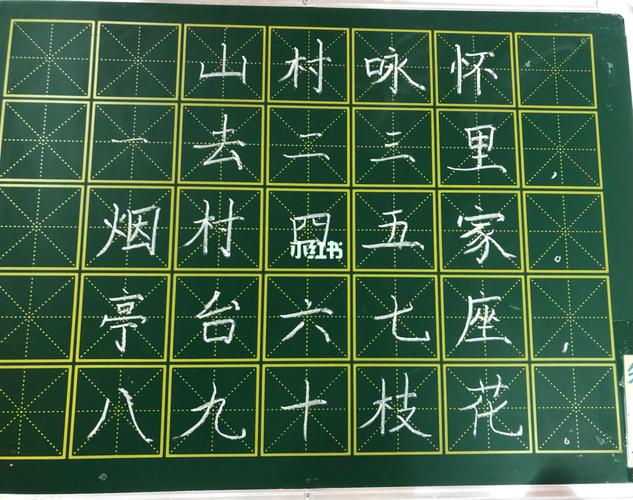 山村咏怀
一去二三里,
烟村四五家。
小红书
亭台六七座,
八九十枝花。